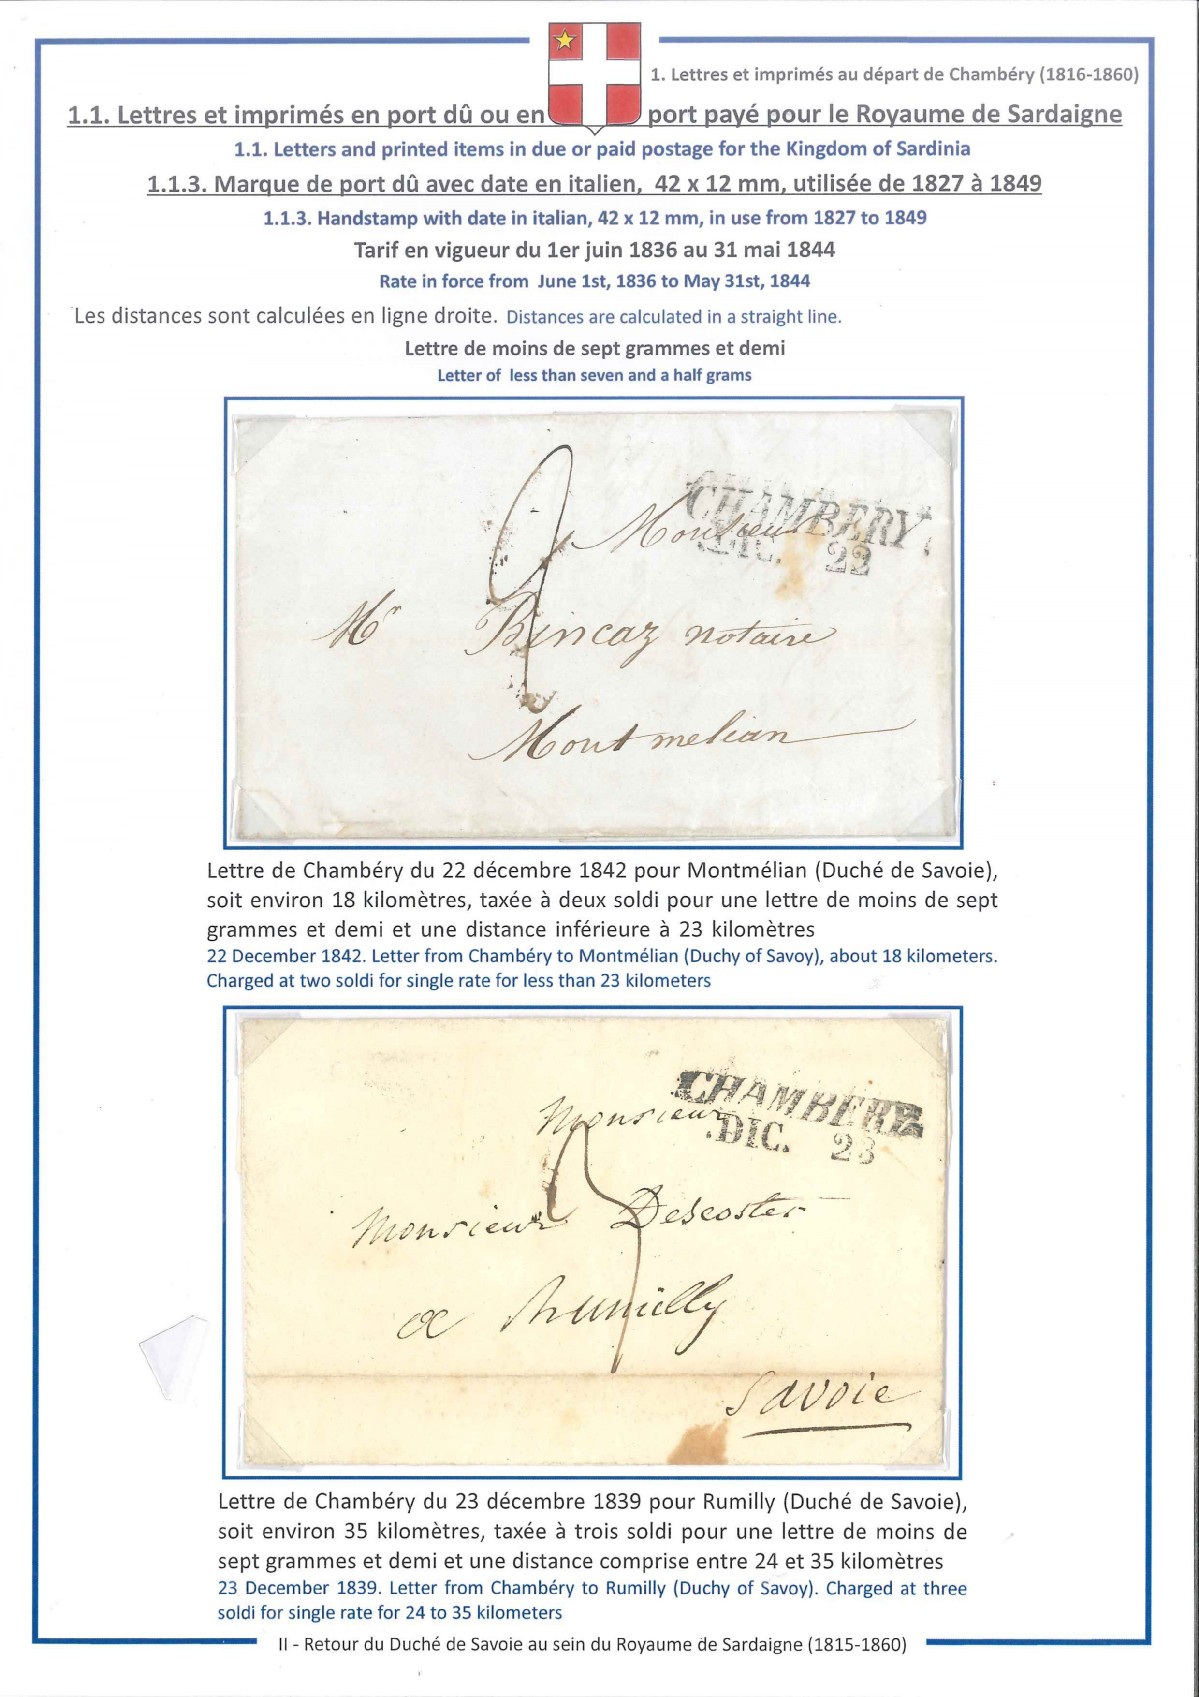 1. Lettres et imprimés au départ de Chambéry (1816-1860)
1.1. Lettres et imprimés en port dû ou en port payé pour le Royaume de Sardaigne
1.1. Letters and printed items in due or paid postage for the Kingdom of Sardinia
1.1.3. Marque de port dû avec date en italien, 42 x 12 mm, utilisée de 1827 à 1849
1.1.3. Handstamp with date in italian, 42 x 12 mm, in use from 1827 to 1849
Tarif en vigueur du 1er juin 1836 au 31 mai 1844
Rate in force from June 1st, 1836 to May 31st, 1844
Les distances sont calculées en ligne droite. Distances are calculated in a straight line.
Lettre de moins de sept grammes et demi
Letter of less than seven and a half grams
CHAMBERY
DIC. 22
2
Monsieur
Mr Bincaz notaire
Montmelian
Lettre de Chambéry du 22 décembre 1842 pour Montmélian (Duché de Savoie),
soit environ 18 kilomètres, taxée à deux soldi pour une lettre de moins de sept
grammes et demi et une distance inférieure à 23 kilomètres
22 December 1842. Letter from Chambéry to Montmélian (Duchy of Savoy), about 18 kilometers.
Charged at two soldi for single rate for less than 23 kilometers
CHAMBERY
.DIC. 23
Monsieur
3
Monsieur Descostes
a Rumilly
Savoie
Lettre de Chambéry du 23 décembre 1839 pour Rumilly (Duché de Savoie),
soit environ 35 kilomètres, taxée à trois soldi pour une lettre de moins de
sept grammes et demi et une distance comprise entre 24 et 35 kilomètres
23 December 1839. Letter from Chambéry to Rumilly (Duchy of Savoy). Charged at three
soldi for single rate for 24 to 35 kilometers
II - Retour du Duché de Savoie au sein du Royaume de Sardaigne (1815-1860)